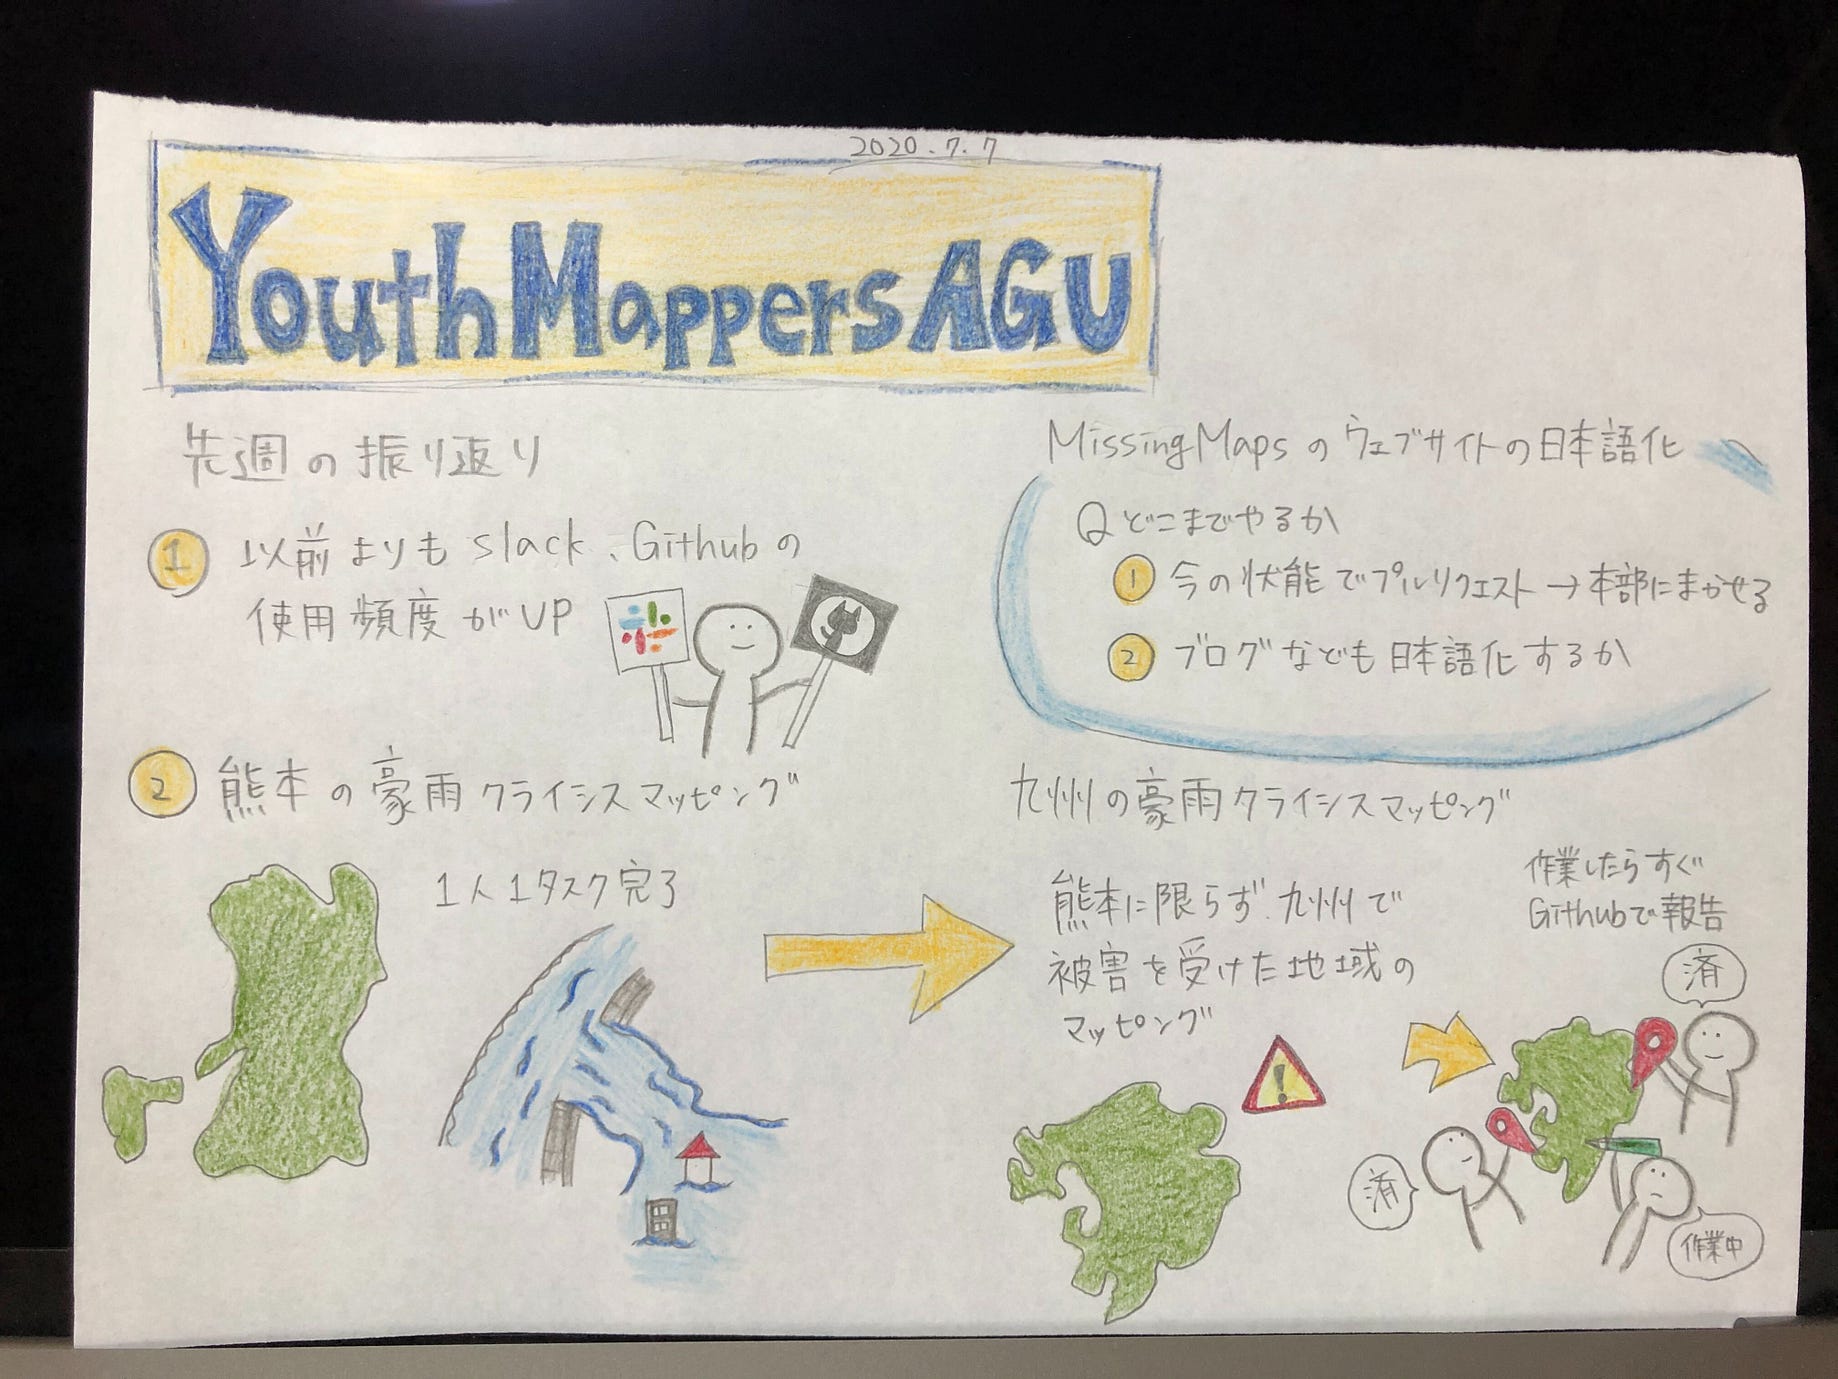 2020.7.7
Youth Mappers AGU
先週の振り返り
1 以前よりも slack、Githubの
使用頻度がUP
2 熊本の豪雨クライシスマッピング
1人1タスク完了
Missing Mapsのウェブサイトの日本語化
Q どこまでやるか
1 今の状態でプルリクエスト→本部にまかせる
2 ブログなども日本語化するか
九州の豪雨クライシスマッピング
熊本に限らず、九州で
被害を受けた地域の
マッピング
!
作業したらすぐ
Githubで報告
済
済
作業中